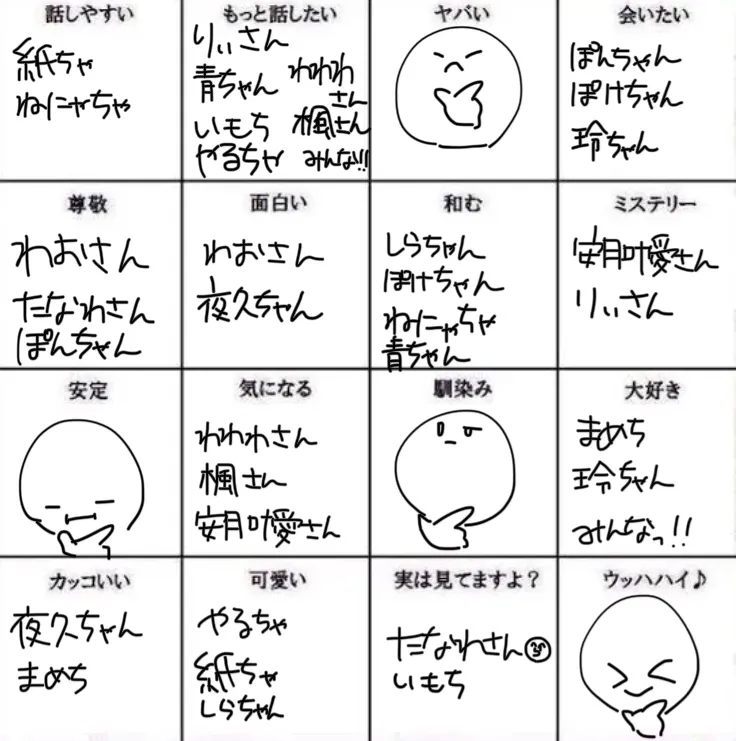 話しやすい
紙ちゃ
ねにゃちゃ
もっと話したい
りぃさん
青ちゃん
わわわさん
いもち
楓さん
やるちゃ
みんな!!
ヤバい
会いたい
ぽんちゃん
ぽけちゃん
玲ちゃん
尊敬
わおさん
たなわさん
ぽんちゃん
面白い
わおさん
夜久ちゃん
和む
しらちゃん
ぽけちゃん
ねにゃちゃ
青ちゃん
ミステリー
安月叶愛さん
りぃさん
安定
気になる
わわわさん
楓さん
安月叶愛さん
馴染み
大好き
まめち
玲ちゃん
みんなっ!!
カッコいい
夜久ちゃん
まめち
可愛い
やるちゃ
紙ちゃ
しらちゃん
実は見てますよ?
たなわさん
いもち
ウッハハイ♪